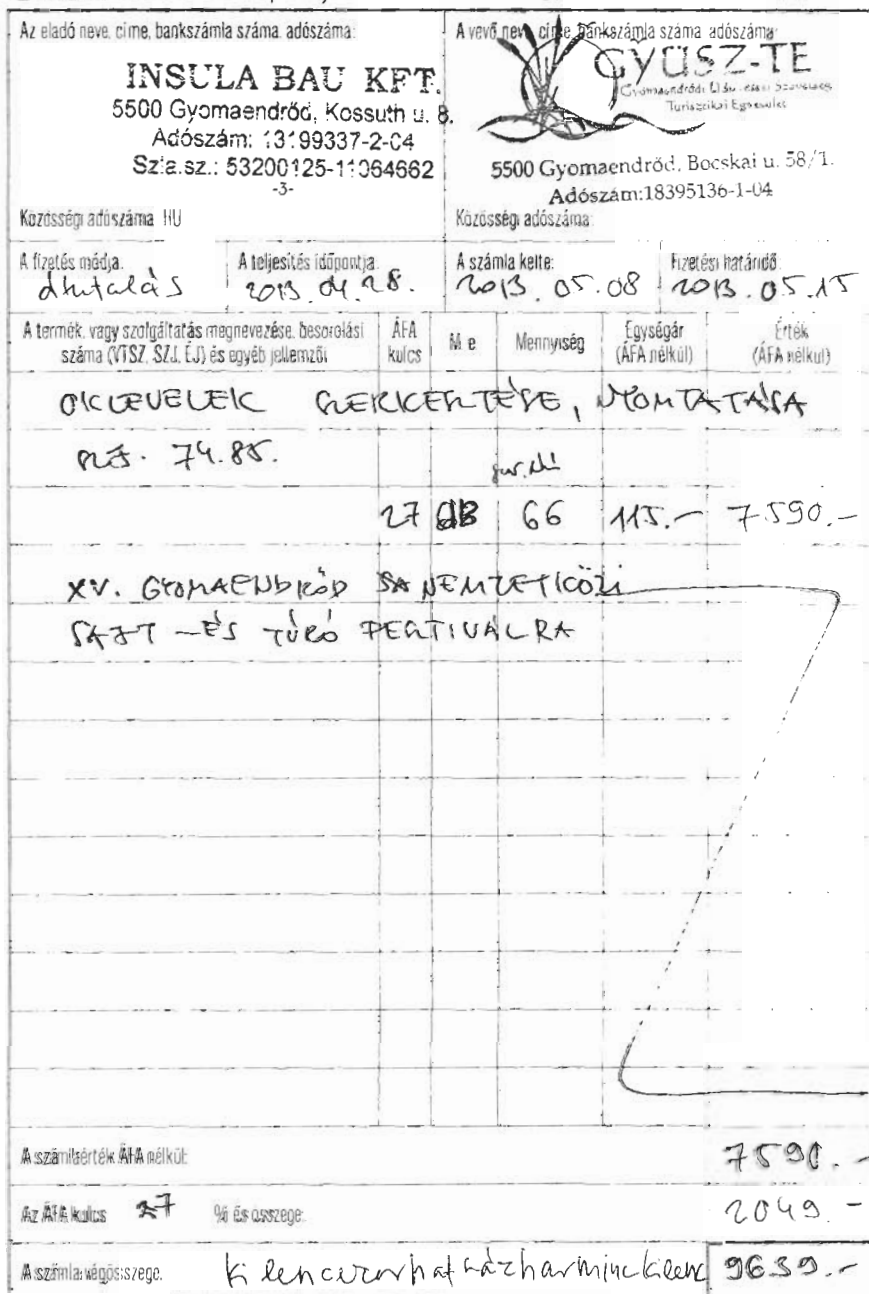 Az eladó neve, címe, bankszámla száma, adószáma:
INSULA BAU KFT.
5500 Gyomaendrőd, Kossuth u. 8.
Adószám: 13199337-2-04
Szla.sz.: 53200125-11064662
-3-
Közösségi adószáma HU
A vevő neve, címe, bankszámla száma, adószáma:
GYÜSZ-TE
Turisztikai Egyesület
5500 Gyomaendrőd, Bocskai u. 58/1.
Adószám:18395136-1-04
Közösségi adószáma:
A fizetés módja: A teljesítés időpontja: A számla kelte: Fizetési határidő:
átutalás 2013.04.28. 2013.05.08 2013.05.15
A termék, vagy szolgáltatás megnevezése, besorolási száma (VTSZ, SZJ, ÉJ) és egyéb jellemzői ÁFA kulcs M e Mennyiség Egységár (ÁFA nélkül) Érték (ÁFA nélkül)
OKLEVELEK SZERKESZTÉSE, NYOMTATÁSA
74.85.
27 DB 66 115.- 7.590.-
XV. GYOMAENDRŐD SA NEMZETKÖZI
SAJT -ÉS TÚRÓ FESZTIVÁLRA
A számlaérték ÁFA nélkül: 7590.-
Az ÁFA kulcs 27 % és összege: 2049.-
A számla végösszege. kilencezerhatszázharminckilenc 9639.-